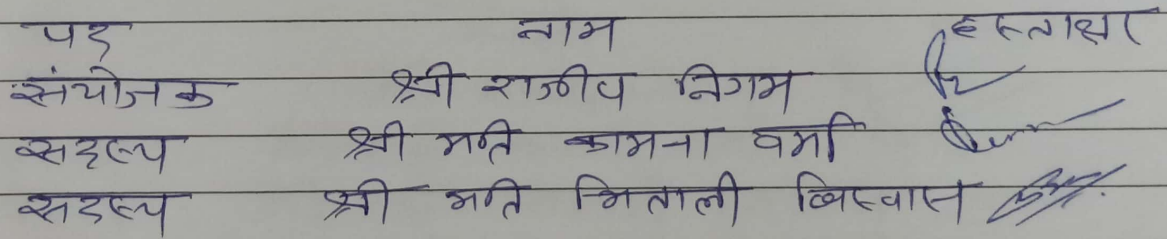 पद नाम हस्ताक्षर
संयोजक श्री राजीव निगम
सदस्य श्री मति कामना वर्मा
सदस्य श्री मति मिताली बिस्वास